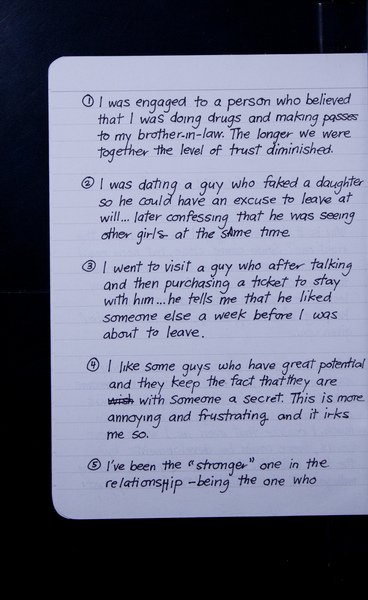 ① I was engaged to a person who believed
that I was doing drugs and making passes
to my brother-in-law. The longer we were
together the level of trust diminished.
② I was dating a guy who faked a daughter
so he could have an excuse to leave at
will... later confessing that he was seeing
other girls at the same time
③ I went to visit a guy who after talking
and then purchasing a ticket to stay
with him... he tells me that he liked
someone else a week before I was
about to leave.
④ I like some guys who have great potential
and they keep the fact that they are
wish with someone a secret. This is more
annoying and frustrating and it irks
me so.
⑤ I've been the "stronger" one in the
relationship - being the one who